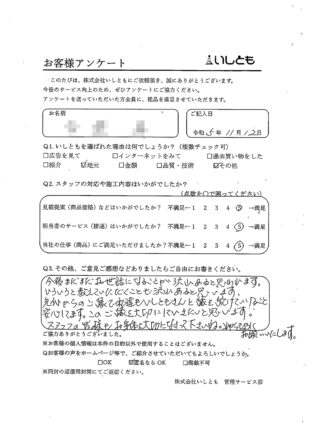 お客様アンケート
いしとも
このたびは、株式会社いしともにご依頼頂き、誠にありがとうございます。
今後のサービス向上のため、ぜひアンケートにご協力ください。
アンケートを送っていただいた方全員に、粗品を進呈させていただきます。
お名前
ご記入日
令和 5年 11月 12日
Q1. いしともを選ばれた理由は何でしょうか?（複数チェック可）
□広告を見て □インターネットをみて □過去買い物をした
□紹介 ☑地元 □金額 □品質・技術 ☑その他
Q2. スタッフの対応や施工内容はいかがでしたか？
（点数を○で囲ってください）
見積提案（商品価格）などはいかがでしたか？ 不満足ー1 2 3 4 5 ー満足
担当者のサービス（接遇）はいかがでしたか？ 不満足ー1 2 3 4 5 ー満足
当社の仕事（商品）にご満足いただけましたか？不満足ー1 2 3 4 5 ー満足
Q3. その他、ご意見ご感想などありましたらご自由にお書きください。
今後まだまだお世話になることが沢山あると思います。
いろいろ教えていただくことも沢山あると思います。
安心してます。このご縁を大切にしていきたいと思います!
スタッフの皆様も お身体を大切になさって下さいね。
お願いします。
ご協力ありがとうございました。
※お客様の個人情報は本件の目的以外で使用することはございません。
Qお客様の声をホームページ等で、ご紹介させていただいてもよろしいでしょうか。
□OK ☑匿名ならOK □掲載不可
※同封の返信用封筒にてご返送ください。
株式会社いしとも 管理サービス部